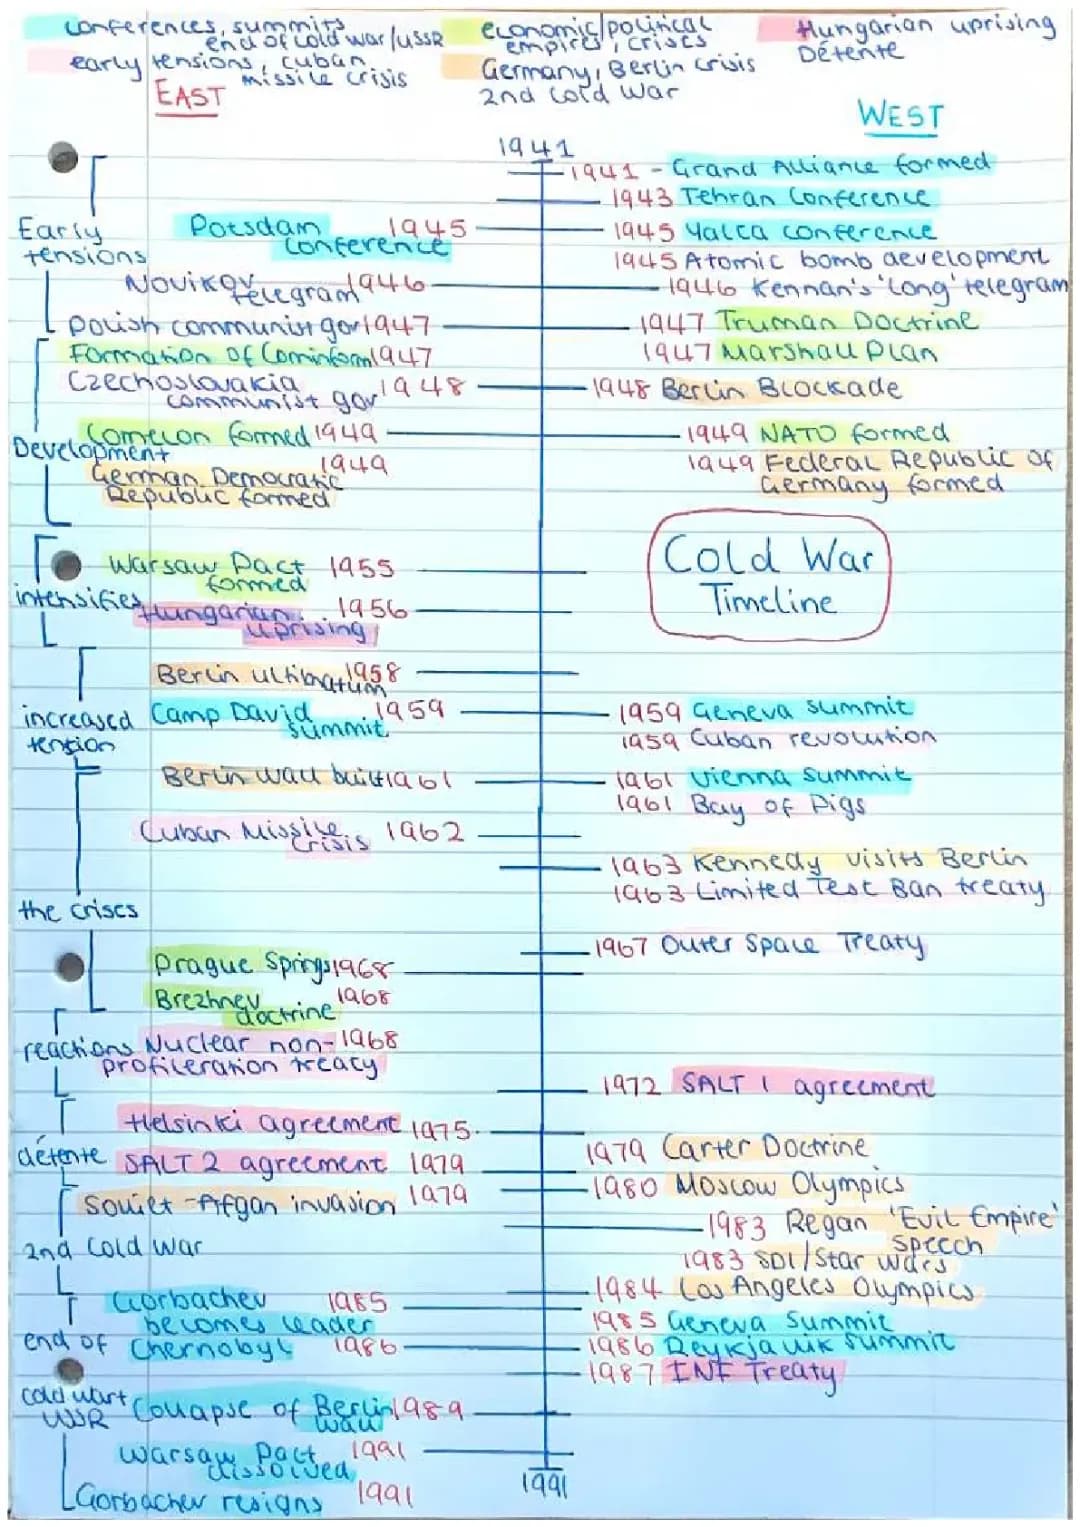 conferences, summits
end of cold war/USSR
early tensions, cuban
missile crisis
economic/political
empires, crises
Germany, Berlin crisis
2nd cold war
Hungarian uprising
Détente
EAST
WEST
1941
1941 - Grand Alliance formed
1943 Tehran Conference
Early
tensions
Potsdam 1945
conference
1945 Yalta conference
1945 Atomic bomb development
Novikov 1946
telegram
1946 Kennan's 'long' telegram
Polish communist gov 1947
1947 Truman Doctrine
Formation of Cominform 1947
1947 Marshall Plan
Czechoslovakia 1948
communist gov
1948 Berlin Blockade
Development
Comecon formed 1949
1949 NATO formed
German Democratic 1949
Republic formed
1949 Federal Republic of
Germany formed
Cold War
Timeline
intensifies
Warsaw Pact 1955
formed
Hungarian 1956
uprising
increased
tension
Berlin ultimatum 1958
Camp David 1959
summit
1959 Geneva summit
1959 Cuban revolution
Berlin wall built 1961
1961 Vienna summit
1961 Bay of Pigs
Cuban Missile 1962
crisis
1963 Kennedy visits Berlin
1963 Limited Test Ban treaty
the crises
1967 Outer Space Treaty
Prague Springs 1968
Brezhnev 1968
doctrine
reactions
Nuclear non- 1968
profileration treaty
1972 SALT 1 agreement
détente
Helsinki agreement 1975
SALT 2 agreement 1979
1979 Carter Doctrine
Soviet-Afgan invasion 1979
1980 Moscow Olympics
2nd Cold War
1983 Regan 'Evil Empire'
speech
1983 SDI/Star wars
1984 Los Angeles Olympics
Gorbachev 1985
becomes leader
1985 Geneva Summit
end of
Chernobyl 1986
1986 Reykjavik summit
1987 INF Treaty
cold war +
USSR
Collapse of Berlin 1989
wall
Warsaw Pact 1991
dissolved
1991
Gorbachev resigns 1991